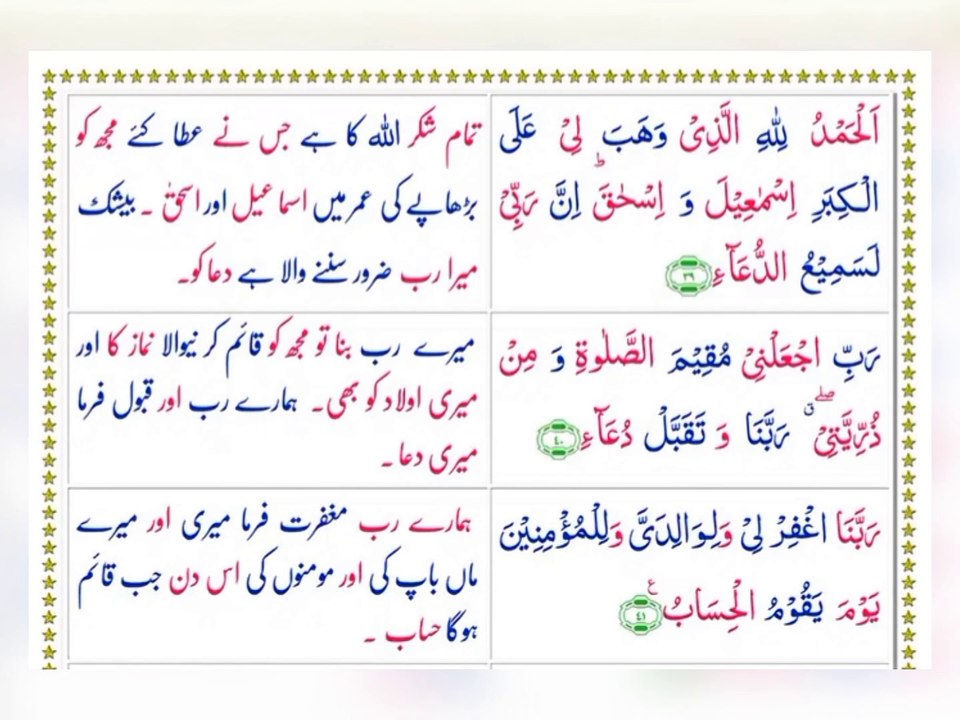 اَلْحَمْدُ لِلّٰهِ الَّذِیْ وَهَبَ لِیْ عَلَی
الْكِبَرِ اِسْمٰعِیْلَ وَ اِسْحٰقَ ؕ اِنَّ رَبِّیْ
لَسَمِیْعُ الدُّعَآءِ ﴿۳۹﴾
تمام شکر اللہ کا ہے جس نے عطا کئے مجھ کو
بڑھاپے کی عمر میں اسماعیل اور اسحٰق ۔ بیشک
میرا رب ضرور سننے والا ہے دعا کو۔
رَبِّ اجْعَلْنِیْ مُقِیْمَ الصَّلٰوةِ وَ مِنْ
ذُرِّیَّتِیْ ۖۗ رَبَّنَا وَ تَقَبَّلْ دُعَآءِ ﴿۴۰﴾
میرے رب بنا تو مجھ کو قائم کرنیوالا نماز کا اور
میری اولاد کو بھی۔ ہمارے رب اور قبول فرما
میری دعا ۔
رَبَّنَا اغْفِرْ لِیْ وَلِوَالِدَیَّ وَلِلْمُؤْمِنِیْنَ
یَوْمَ یَقُوْمُ الْحِسَابُ ۧ ﴿۴۱﴾
ہمارے رب مغفرت فرما میری اور میرے
ماں باپ کی اور مومنوں کی اس دن جب قائم
ہوگا حساب ۔